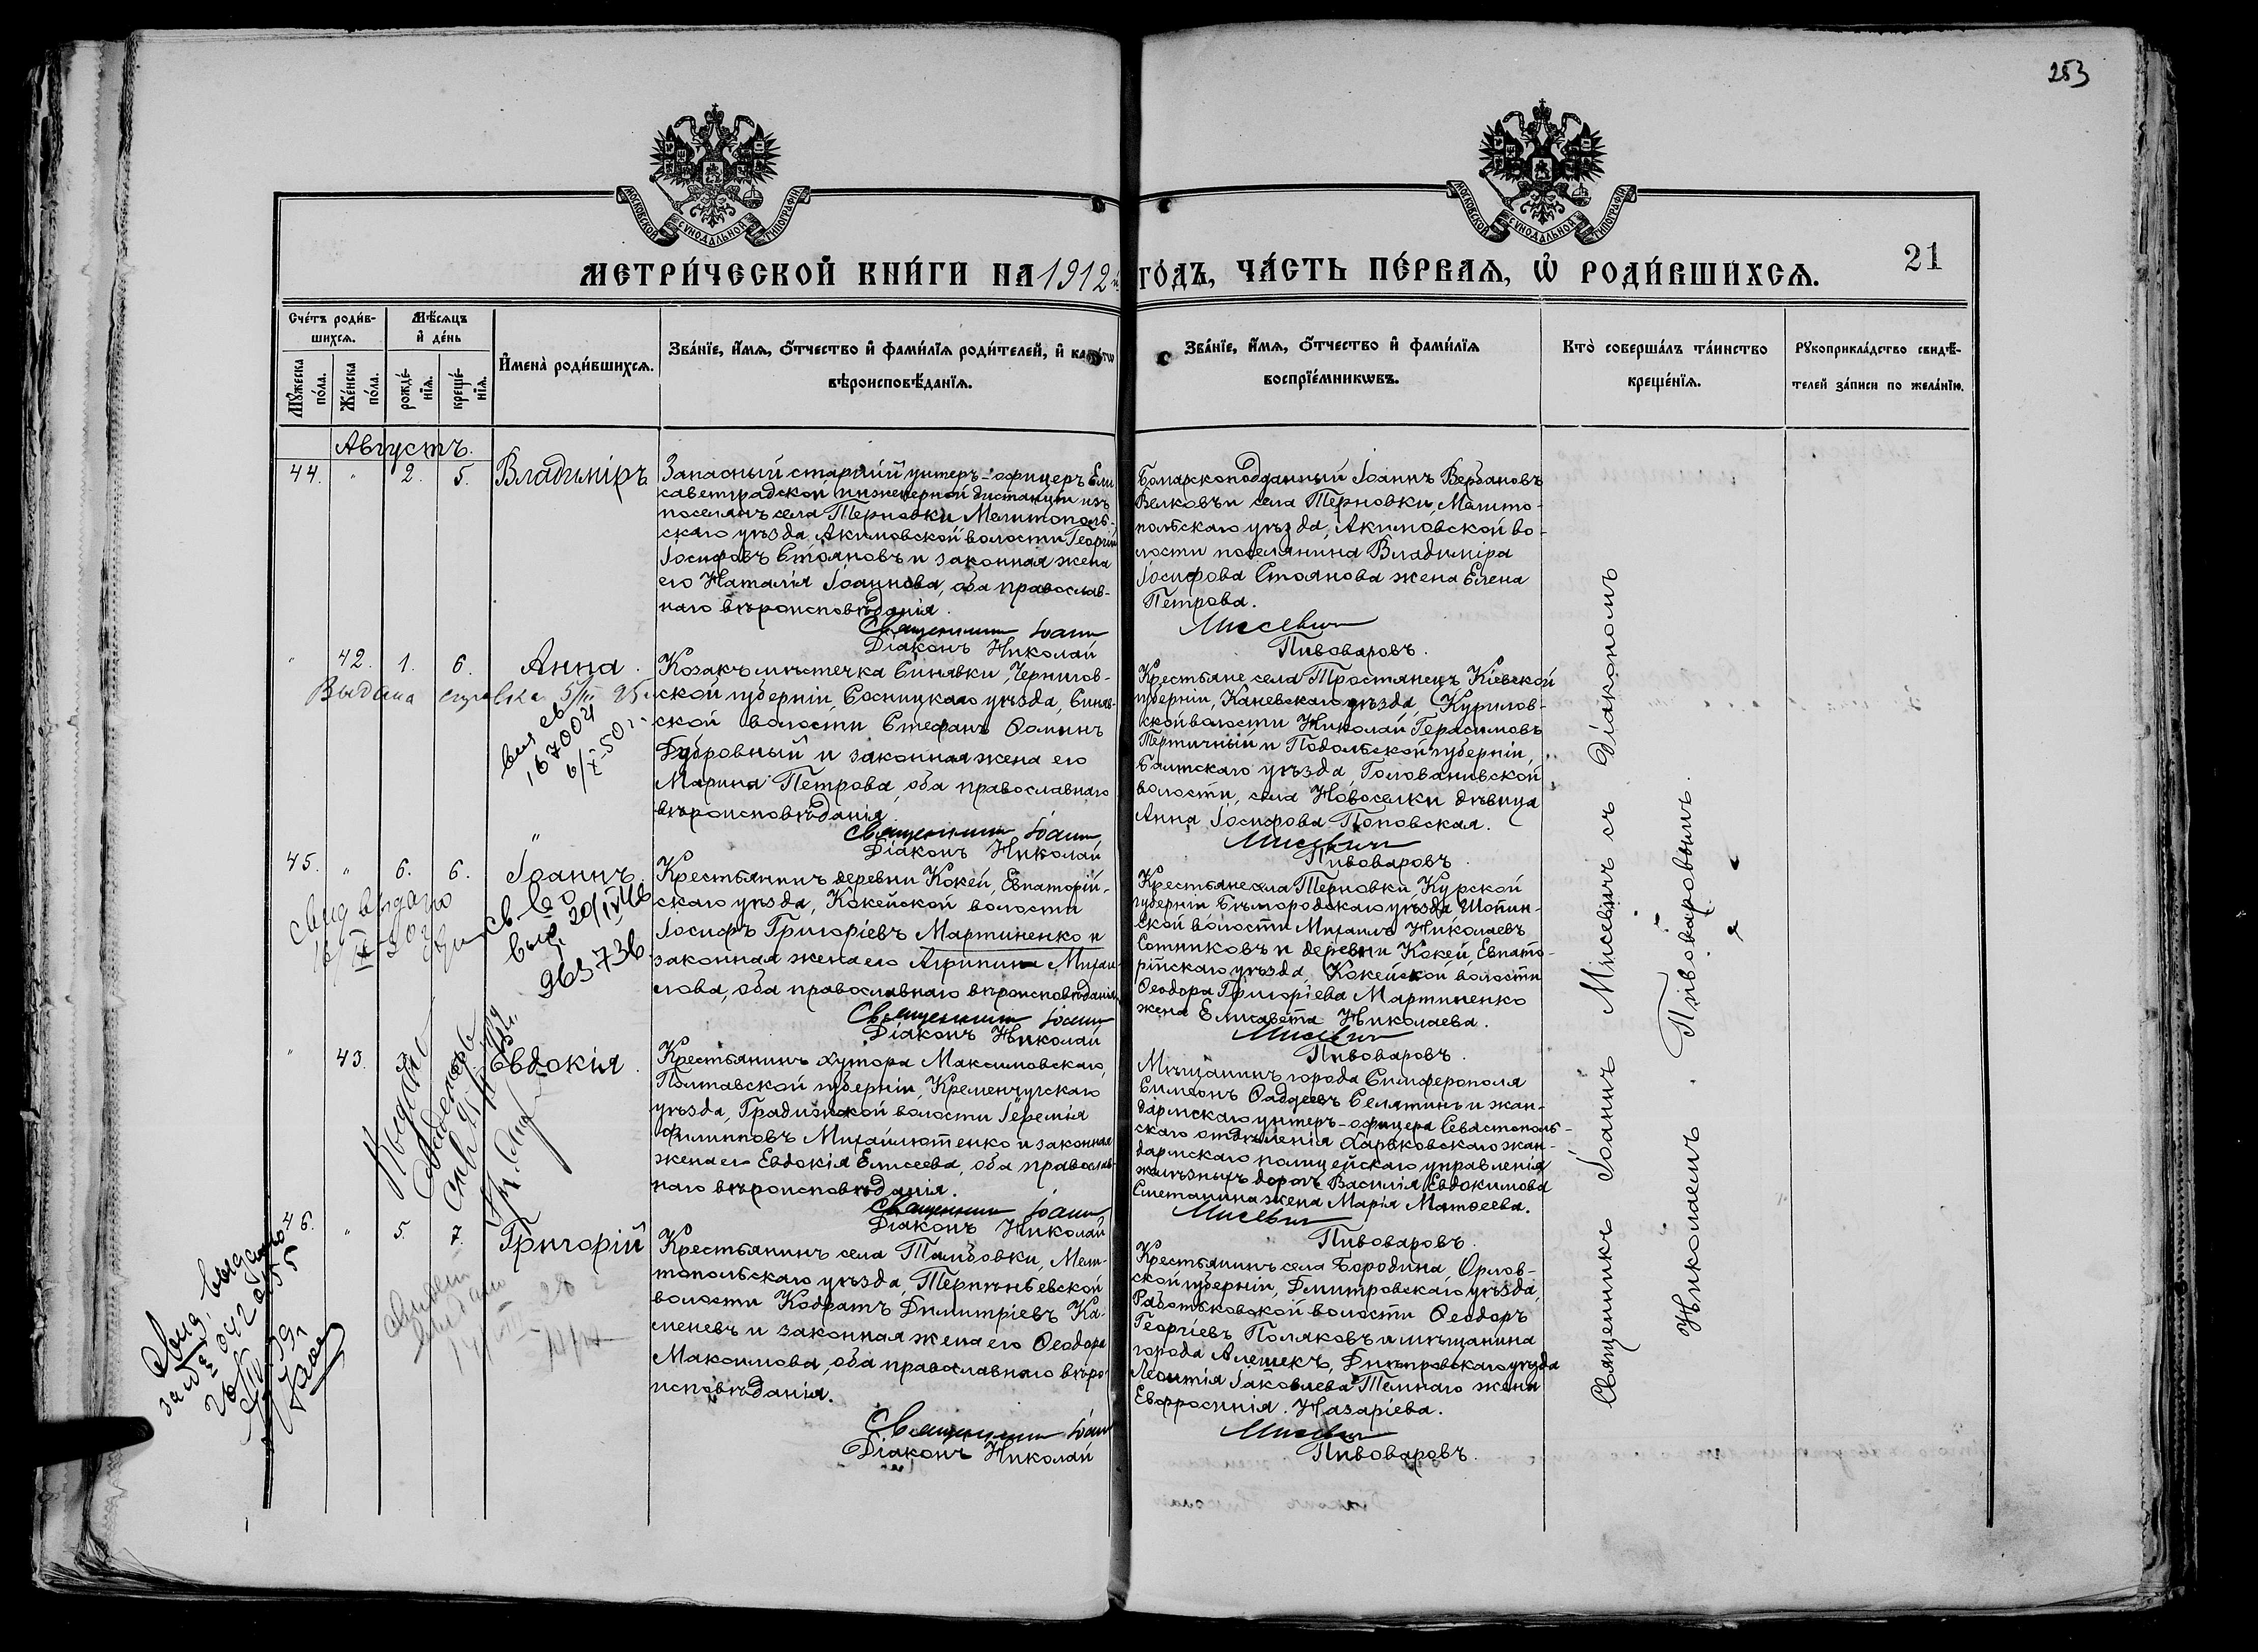 253
МОСКОВСКОЙ СУНОДАЛЬНОЙ ТИПОГРАФІИ
МОСКОВСКОЙ СУНОДАЛЬНОЙ ТИПОГРАФІИ
МЕТРИ́ЧЕСКОЙ КНИ́ГИ НА 1912 й
ГО́ДЪ, ЧА́СТЬ ПЕ́РВАѦ, Ѽ РОДИ́ВШИХСѦ.
21
Сче́тъ роди́в-
шихсѧ.
Мѣ́сѧцъ
и҆ де́нь
Мꙋ́жеска
по́ла.
Же́нска
по́ла.
рожде́-
нїѧ.
креще́-
нїѧ.
И҆мена̀ роди́вшихсѧ.
Зва́нїе, и҆́мѧ, ѻ҆́тчество и҆ фами́лїѧ роди́телей, и҆
вѣроисповѣ́данїѧ.
Зва́нїе, и҆́мѧ, ѻ҆́тчество и҆ фами́лїѧ
воспрїе́мникѡвъ.
Кто̀ соверша́лъ та́инство
креще́нїѧ.
Рꙋкоприкла́дство свидѣ́-
телей за́писи по жела́нїю.
Августъ.
44. " 2. 5. Владиміръ
Запасный старшій унтеръ-офицеръ Ели
саветградской инженерной дистанціи изъ
поселянъ села Терновки Мелитополь-
скаго уѣзда, Акимовской волости Георгій
Іосифовъ Стояновъ и законная жена
его Наталія Іоаннова, оба православ-
наго вѣроисповѣданія.
Священникъ Іоаннъ
Діаконъ Николай
Болгарскоподданный Іоаннъ Вербановъ
Велковъ и села Терновки, Мелито-
польскаго уѣзда, Акимовской во-
лости поселянина Владиміра
Іосифова Стоянова жена Елена
Петрова.
Мисевичъ
Пивоваровъ.
" 42. 1. 6. Анна.
Выдана справка 5/III 25
167002
6/X-50 г.
Козакъ мѣстечка Синявки, Чернигов-
ской губерніи, Сосницкаго уѣзда, Синяв-
ской волости Стефанъ Ѳоминъ
Дубровный и законная жена его
Марина Петрова, оба православнаго
вѣроисповѣданія.
Священникъ Іоаннъ
Діаконъ Николай
Крестьяне села Тростянецъ Кіевской
губерніи, Каневскаго уѣзда, Курилов-
ской волости Николай Герасимовъ
Тертичный и Подольской губерніи,
Балтскаго уѣзда, Голованивской
волости, села Новоселки дѣвица
Анна Іосифова Поповская.
Мисевичъ
Пивоваровъ.
45. " 6. 6. Іоаннъ.
Св-во
выд. 20/IV 46
963736
Крестьянинъ деревни Кокей, Евпаторій-
скаго уѣзда, Кокейской волости
Іосифъ Григоріевъ Мартиненко и
законная жена его Агрипина Михаи
лова, оба православнаго вѣроисповѣданія
Священникъ Іоаннъ
Діаконъ Николай
Крестьяне села Терновки, Курской
губерніи Бѣлгородскаго уѣзда Шопин-
ской волости Михаилъ Николаевъ
Сотниковъ и деревни Кокей, Евпато-
рійскаго уѣзда, Кокейской волости
Ѳеодора Григоріева Мартиненко
жена Елисавета Николаева.
Мисевичъ
Пивоваровъ.
" 43. Евдокія.
Крестьянинъ хутора Максимовскаго,
Полтавской губерніи, Кременчугскаго
уѣзда, Градижской волости Іеремія
Филипповъ Михайлютенко и законная
жена его Евдокія Елисеева, оба православ
наго вѣроисповѣданія.
Священникъ Іоаннъ
Діаконъ Николай
Мѣщанинъ города Симферополя
Симеонъ Ѳаддеевъ Селятинъ и жан-
дармскаго унтеръ-офицера Севастополь-
скаго отдѣленія Харьковскаго жан-
дармскаго полицейскаго управленія
желѣзныхъ дорогъ Василія Евдокимова
Сметанина жена Марія Матѳеева.
Мисевичъ
Пивоваровъ.
46. " 5. 7. Григорій
Крестьянинъ села Тамбовки, Мели-
топольскаго уѣзда, Терпѣньевской
волости Кодратъ Димитріевъ Ка-
меневъ и законная жена его Ѳеодора
Максимова, оба православнаго вѣро-
исповѣданія.
Священникъ Іоаннъ
Діаконъ Николай
Крестьянинъ села Бородина, Орлов-
ской губерніи, Дмитровскаго уѣзда,
волости Ѳеодоръ
Георгіевъ Поляковъ и мѣщанина
города Алешекъ, Днѣпровскаго уѣзда
Леонтія Іаковлева Темнаго жена
Евфросинія Назаріева.
Мисевичъ
Пивоваровъ.
Священникъ Іоаннъ Мисевичъ съ Діакономъ
Николаемъ Пивоваровымъ.